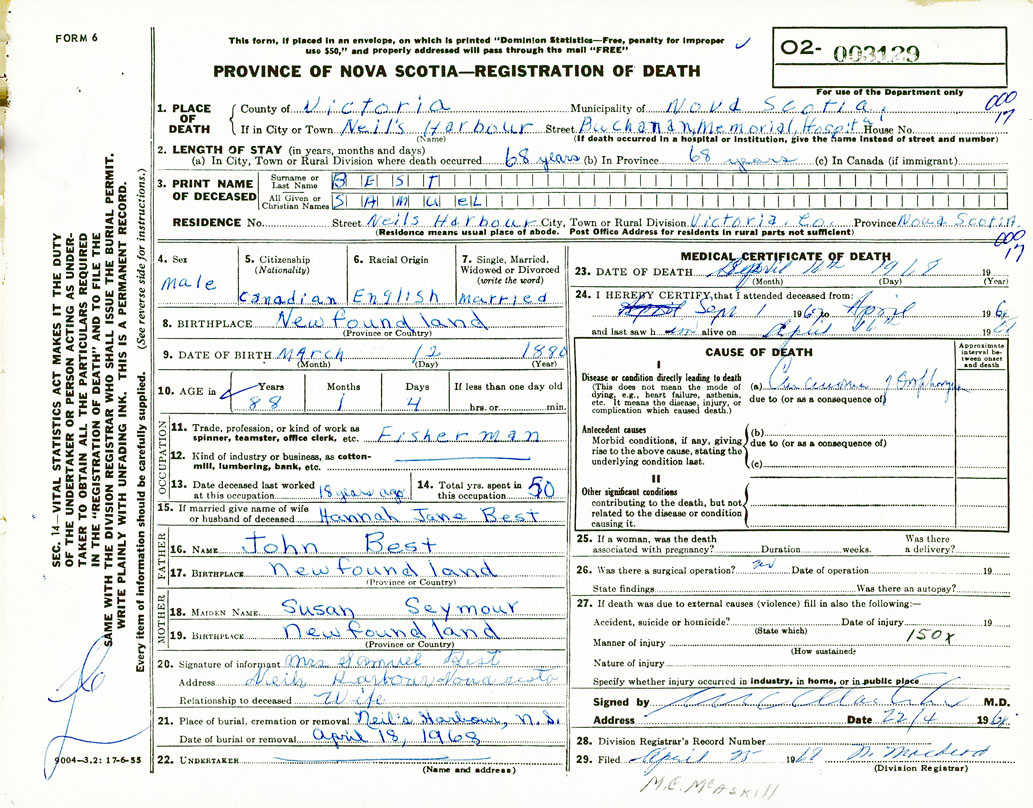 FORM 6
This form, if placed in an envelope, on which is printed "Dominion Statistics—Free, penalty for improper
use $50," and properly addressed will pass through the mail "FREE"
O2- 003129
PROVINCE OF NOVA SCOTIA—REGISTRATION OF DEATH
For use of the Department only
000
17
1. PLACE OF DEATH
County of Victoria Municipality of Nova Scotia.
If in City or Town Neil's Harbour Street Buchanan, Memorial, Hospital House No.
(Name) (If death occurred in a hospital or institution, give the name instead of street and number)
2. LENGTH OF STAY (in years, months and days)
(a) In City, Town or Rural Division where death occurred 68 years (b) In Province 68 years (c) In Canada (if immigrant)
3. PRINT NAME OF DECEASED
Surname or Last Name BEST
All Given or Christian Names SAMUEL
RESIDENCE No. Street Neils Harbour City, Town or Rural Division Victoria. Co. Province Nova Scotia.
(Residence means usual place of abode. Post Office Address for residents in rural parts not sufficient)
000
17
4. Sex
male
5. Citizenship
(Nationality)
Canadian
6. Racial Origin
English
7. Single, Married,
Widowed or Divorced
(write the word)
Married
8. BIRTHPLACE Newfoundland
(Province or Country)
9. DATE OF BIRTH March 12 1880
(Month) (Day) (Year)
10. AGE in
Years Months Days If less than one day old
88 1 4 hrs. or min.
OCCUPATION
11. Trade, profession, or kind of work as
spinner, teamster, office clerk, etc. Fisherman
12. Kind of industry or business, as cotton-
mill, lumbering, bank, etc.
13. Date deceased last worked
at this occupation 18 years ago
14. Total yrs. spent in
this occupation 50
15. If married give name of wife
or husband of deceased Hannah Jane Best
FATHER
16. NAME John Best
17. BIRTHPLACE Newfoundland
(Province or Country)
MOTHER
18. MAIDEN NAME Susan Seymour
19. BIRTHPLACE Newfoundland
(Province or Country)
20. Signature of informant Mrs Samuel Best
Address Neils Harbour Nova Scotia
Relationship to deceased Wife
21. Place of burial, cremation or removal Neil's Harbour, N.S.
Date of burial or removal April 18, 1968
22. UNDERTAKER
(Name and address)
MEDICAL CERTIFICATE OF DEATH
23. DATE OF DEATH April 16th 1968 19
(Month) (Day) (Year)
24. I HEREBY CERTIFY, that I attended deceased from:
Sept 1 1967 to April 1968
and last saw him alive on April 16th 19
Approximate
interval be-
tween onset
and death
CAUSE OF DEATH
I
Disease or condition directly leading to death
(This does not mean the mode of
dying, e.g., heart failure, asthenia,
etc. It means the disease, injury, or
complication which caused death.)
(a) Carcinoma of
due to (or as a consequence of)
Antecedent causes
Morbid conditions, if any, giving
rise to the above cause, stating the
underlying condition last.
(b)
due to (or as a consequence of)
(c)
II
Other significant conditions
contributing to the death, but not
related to the disease or condition
causing it.
25. If a woman, was the death
associated with pregnancy? Duration weeks. Was there
a delivery?
26. Was there a surgical operation? Date of operation 19
State findings Was there an autopsy?
27. If death was due to external causes (violence) fill in also the following:—
Accident, suicide or homicide? Date of injury 19
(State which)
150X
Manner of injury
(How sustained)
Nature of injury
Specify whether injury occurred in industry, in home, or in public place
Signed by M.D.
Address Date 22/4 1968
28. Division Registrar's Record Number
29. Filed April 25 19
(Division Registrar)
M.C. McAskill
SEC. 14—VITAL STATISTICS ACT MAKES IT THE DUTY
OF THE UNDERTAKER OR PERSON ACTING AS UNDER-
TAKER TO OBTAIN ALL THE PARTICULARS REQUIRED
IN THE "REGISTRATION OF DEATH" AND TO FILE THE
SAME WITH THE DIVISION REGISTRAR WHO SHALL ISSUE THE BURIAL PERMIT.
WRITE PLAINLY WITH UNFADING INK. THIS IS A PERMANENT RECORD.
Every item of information should be carefully supplied. (See reverse side for instructions.)
9004—3.2: 17-6-55